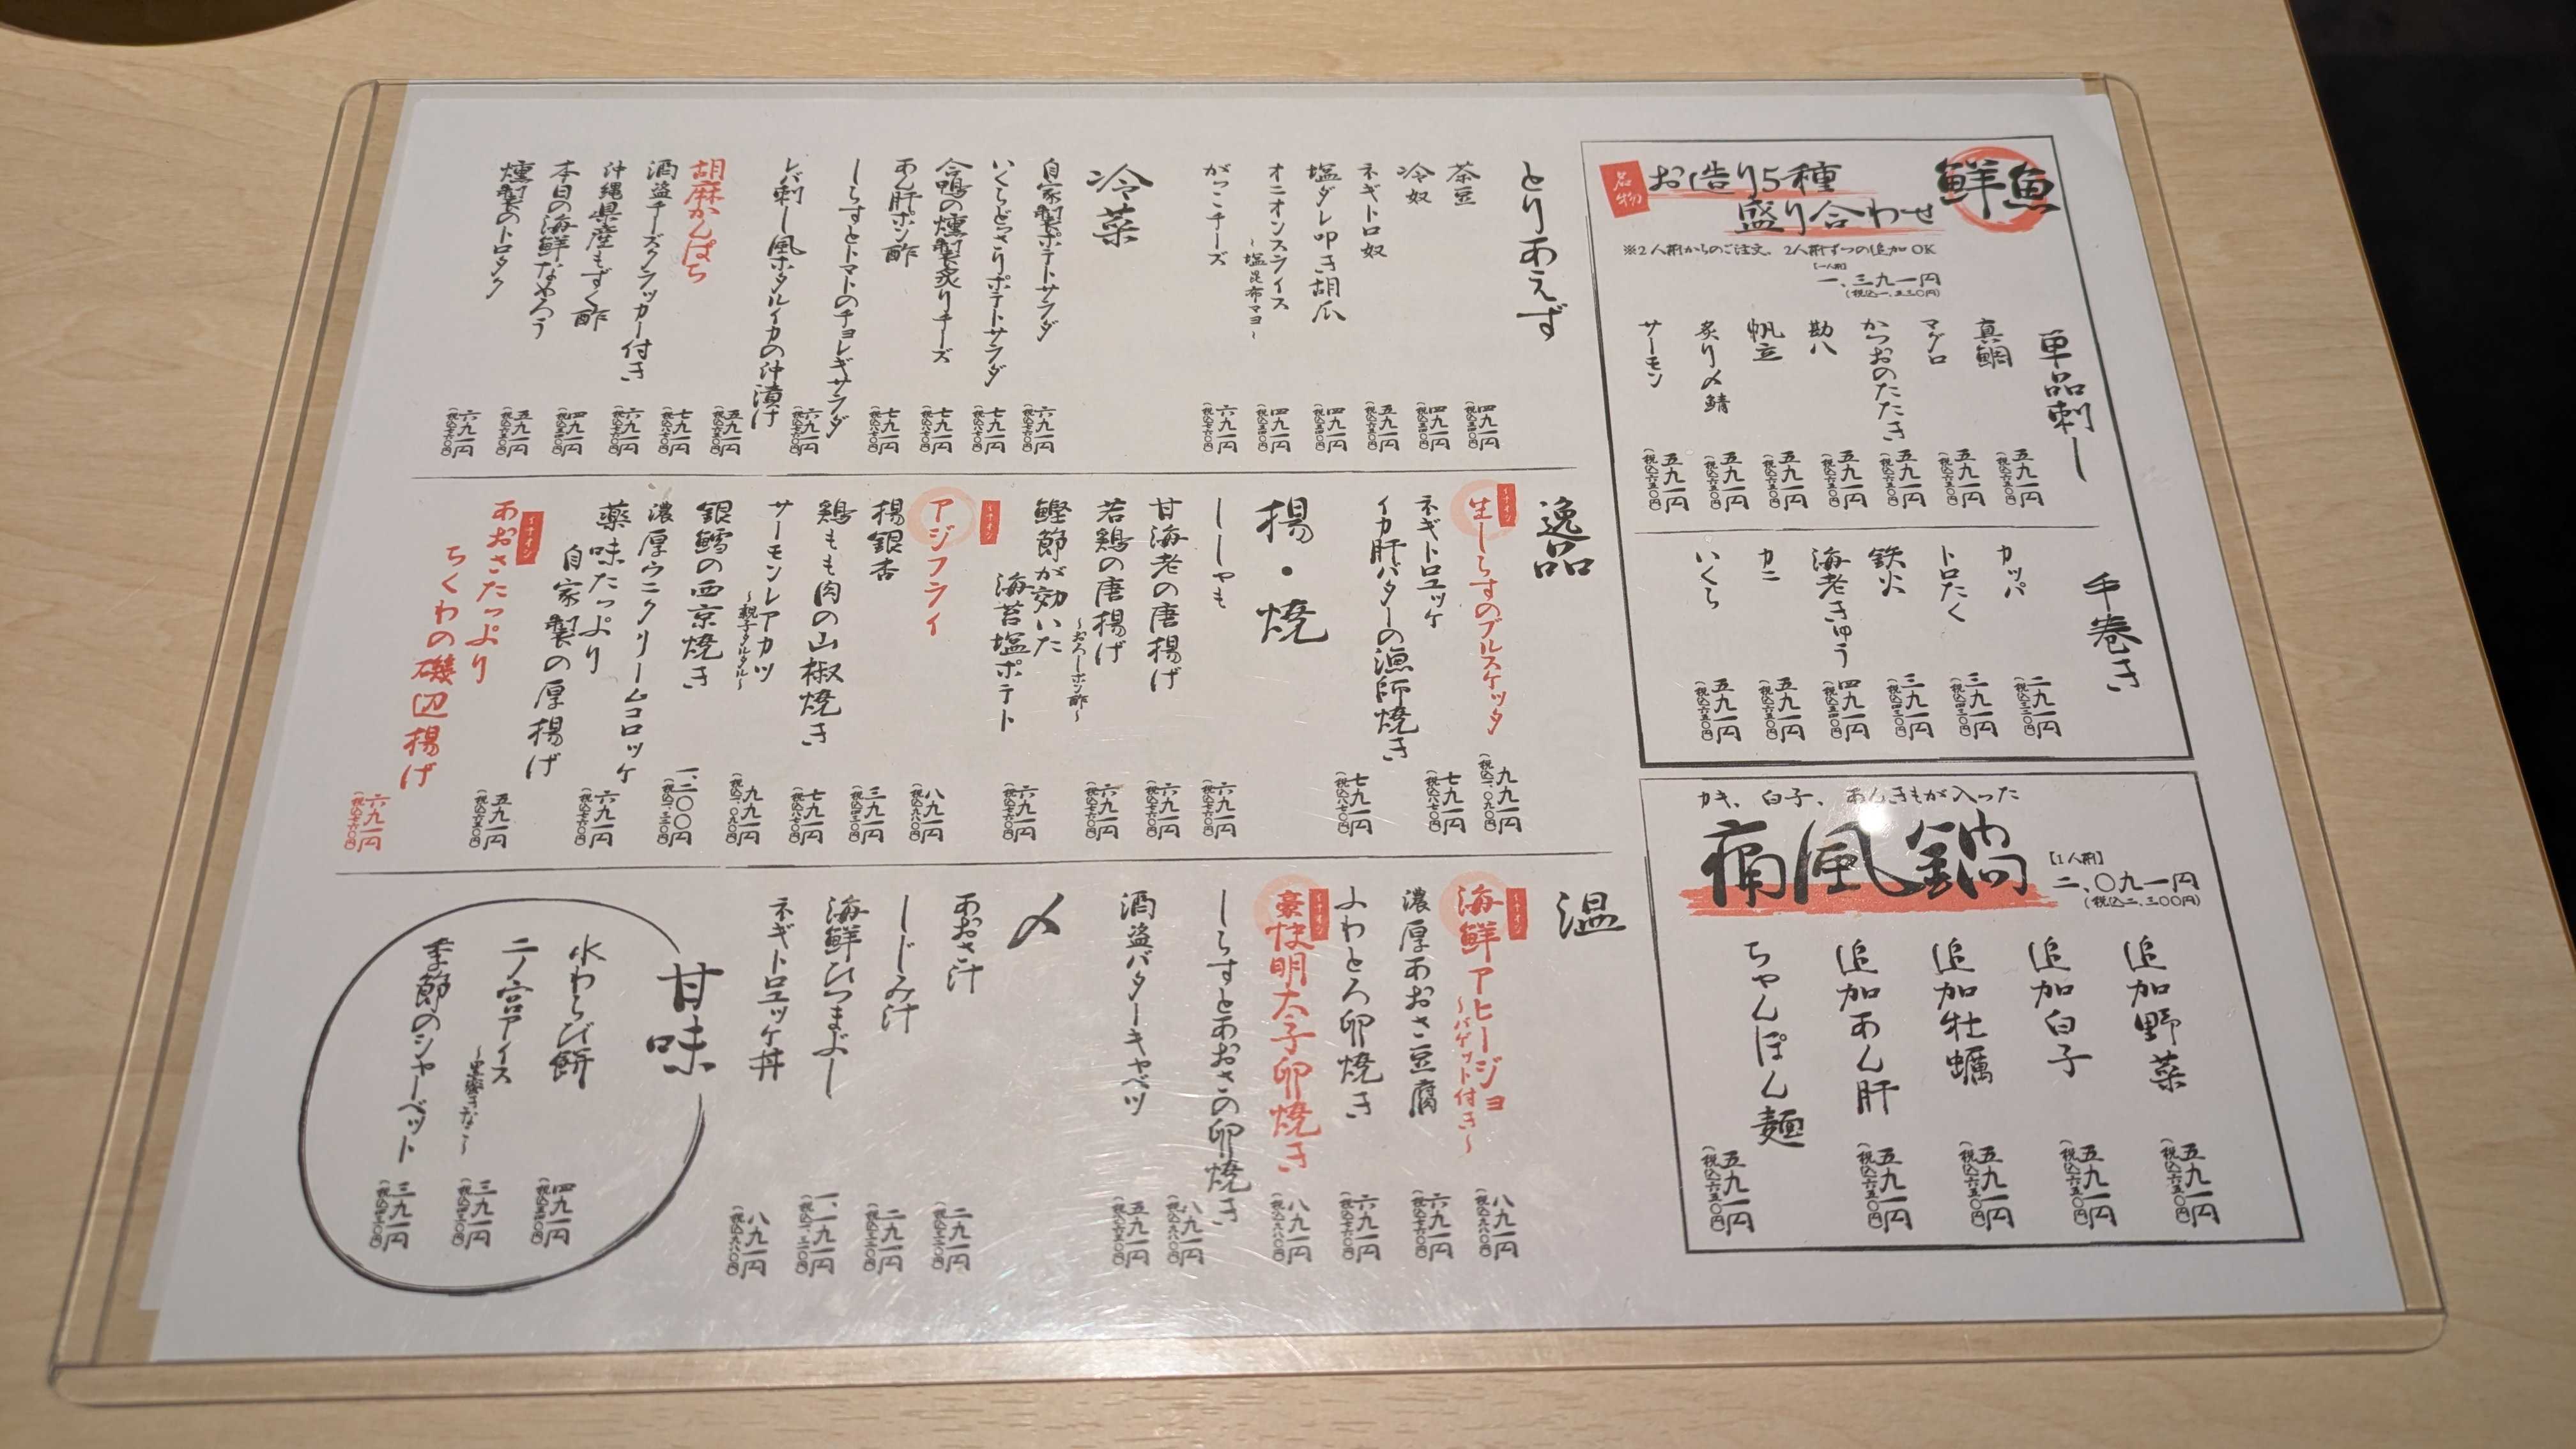 鮮魚
名物
お造り5種
盛り合わせ
※2人前からのご注文、2人前ずつの追加OK
[一人前]
一、三九一円
(税込一、五三〇円)
単品刺し
真鯛 五九一円 (税込六五〇円)
マグロ 五九一円 (税込六五〇円)
かつおのたたき 五九一円 (税込六五〇円)
勘八 五九一円 (税込六五〇円)
帆立 五九一円 (税込六五〇円)
炙り〆鯖 五九一円 (税込六五〇円)
サーモン 五九一円 (税込六五〇円)
手巻き
カッパ 二九一円 (税込三二〇円)
トロたく 三九一円 (税込四三〇円)
鉄火 三九一円 (税込四三〇円)
海老きゅう 四九一円 (税込五四〇円)
カニ 五九一円 (税込六五〇円)
いくら 五九一円 (税込六五〇円)
カキ、白子、あんきもが入った
痛風鍋
[1人前]
二、〇九一円
(税込二、三〇〇円)
追加野菜 五九一円 (税込六五〇円)
追加白子 五九一円 (税込六五〇円)
追加牡蠣 五九一円 (税込六五〇円)
追加あん肝 五九一円 (税込六五〇円)
ちゃんぽん麺 五九一円 (税込六五〇円)
とりあえず
茶豆 四九一円 (税込五四〇円)
冷奴 四九一円 (税込五四〇円)
ネギトロ奴 五九一円 (税込六五〇円)
塩ダレ叩き胡瓜 四九一円 (税込五四〇円)
オニオンスライス 四九一円 (税込五四〇円)
～塩昆布マヨ～
がっこチーズ 六九一円 (税込七六〇円)
冷菜
自家製ポテトサラダ 六九一円 (税込七六〇円)
いくらどっさりポテトサラダ 七九一円 (税込八七〇円)
合鴨の燻製炙りチーズ 七九一円 (税込八七〇円)
あん肝ポン酢 七九一円 (税込八七〇円)
しらすとトマトのチョレギサラダ 六九一円 (税込七六〇円)
レバ刺し風ホタルイカの沖漬け 五九一円 (税込六五〇円)
胡麻かんぱち 七九一円 (税込八七〇円)
酒盗チーズクラッカー付き 六九一円 (税込七六〇円)
沖縄県産もずく酢 四九一円 (税込五四〇円)
本日の海鮮なめろう 五九一円 (税込六五〇円)
燻製のトロタク 六九一円 (税込七六〇円)
逸品
イチオシ
生しらすのブルスケッタ 九九一円 (税込一、〇九〇円)
ネギトロユッケ 七九一円 (税込八七〇円)
イカ肝バターの漁師焼き 七九一円 (税込八七〇円)
揚・焼
ししゃも 六九一円 (税込七六〇円)
甘海老の唐揚げ 六九一円 (税込七六〇円)
若鶏の唐揚げ 六九一円 (税込七六〇円)
～おろしポン酢～
鰹節が効いた
海苔塩ポテト 六九一円 (税込七六〇円)
イチオシ
アジフライ 八九一円 (税込九八〇円)
揚銀杏 三九一円 (税込四三〇円)
鶏もも肉の山椒焼き 七九一円 (税込八七〇円)
サーモンレアカツ 九九一円 (税込一、〇九〇円)
～親子タルタル～
銀鱈の西京焼き 一、二〇〇円 (税込一、三二〇円)
濃厚ウニクリームコロッケ 六九一円 (税込七六〇円)
薬味たっぷり
自家製の厚揚げ 五九一円 (税込六五〇円)
イチオシ
あおさたっぷり
ちくわの磯辺揚げ 六九一円 (税込七六〇円)
温
イチオシ
海鮮アヒージョ 八九一円 (税込九八〇円)
～バゲット付き～
濃厚あおさ豆腐 六九一円 (税込七六〇円)
ふわとろ卵焼き 六九一円 (税込七六〇円)
イチオシ
豪快明太子卵焼き 八九一円 (税込九八〇円)
しらすとあおさの卵焼き 八九一円 (税込九八〇円)
酒盗バターキャベツ 五九一円 (税込六五〇円)
〆
あおさ汁 二九一円 (税込三二〇円)
しじみ汁 二九一円 (税込三二〇円)
海鮮ひつまぶし 一、一九一円 (税込一、三一〇円)
ネギトロユッケ丼 八九一円 (税込九八〇円)
甘味
水わらび餅 四九一円 (税込五四〇円)
二ノ宮アイス 三九一円 (税込四三〇円)
～黒蜜きなこ～
季節のシャーベット 三九一円 (税込四三〇円)